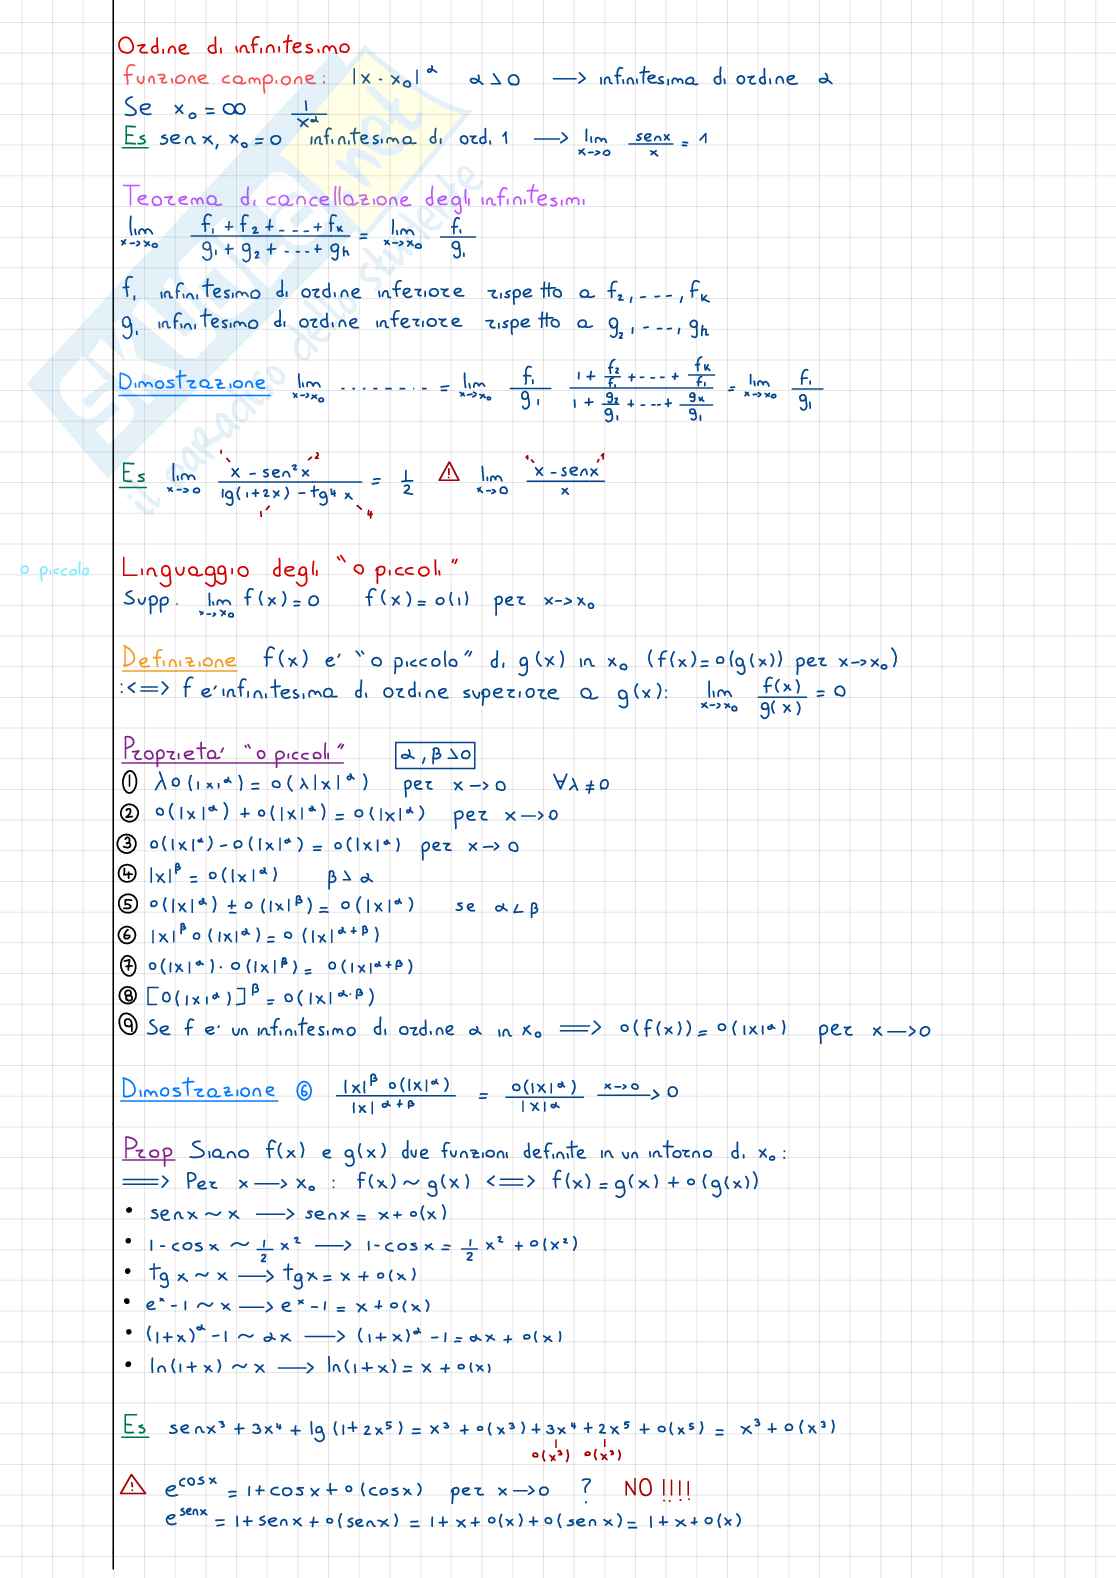 Ordine di infinitesimo
funzione campione: |x - x₀|^α α > 0 —> infinitesima di ordine α
Se x₀ = ∞ 1/x^α
Es sen x, x₀ = 0 infinitesima di ord. 1 —> lim x->0 senx/x = 1
Teorema di cancellazione degli infinitesimi
lim x->x₀ (f₁ + f₂ + --- + fₖ)/(g₁ + g₂ + --- + gₕ) = lim x->x₀ f₁/g₁
f₁ infinitesimo di ordine inferiore rispetto a f₂, ---, fₖ
g₁ infinitesimo di ordine inferiore rispetto a g₂, ---, gₕ
Dimostrazione lim x->x₀ ........ = lim x->x₀ f₁/g₁ (1 + f₂/f₁ + --- + fₖ/f₁)/(1 + g₂/g₁ + --- + gₖ/g₁) = lim x->x₀ f₁/g₁
Es lim x->0 (x - sen²x)/(lg(1+2x) - tg⁴x) = 1/2 ⚠ lim x->0 (x - senx)/x
1 2 1 1
1 4
o piccolo Linguaggio degli "o piccoli"
Supp. lim x->x₀ f(x) = 0 f(x) = o(1) per x->x₀
Definizione f(x) e' "o piccolo" di g(x) in x₀ (f(x) = o(g(x)) per x->x₀)
:<=> f e' infinitesima di ordine superiore a g(x): lim x->x₀ f(x)/g(x) = 0
Proprieta' "o piccoli" α, β > 0
① λo(|x|^α) = o(λ|x|^α) per x->0 ∀λ ≠ 0
② o(|x|^α) + o(|x|^α) = o(|x|^α) per x->0
③ o(|x|^α) - o(|x|^α) = o(|x|^α) per x->0
④ |x|^β = o(|x|^α) β > α
⑤ o(|x|^α) ± o(|x|^β) = o(|x|^α) se α < β
⑥ |x|^β o(|x|^α) = o(|x|^(α+β))
⑦ o(|x|^α) · o(|x|^β) = o(|x|^(α+β))
⑧ [o(|x|^α)]^β = o(|x|^(α·β))
⑨ Se f e' un infinitesimo di ordine α in x₀ ==> o(f(x)) = o(|x|^α) per x—>0
Dimostrazione ⑥ |x|^β o(|x|^α)/|x|^(α+β) = o(|x|^α)/|x|^α x->0 —> 0
Prop Siano f(x) e g(x) due funzioni definite in un intorno di x₀:
==> Per x—>x₀ : f(x) ~ g(x) <=> f(x) = g(x) + o(g(x))
• senx ~ x —> senx = x + o(x)
• 1 - cosx ~ 1/2 x² —> 1 - cosx = 1/2 x² + o(x²)
• tgx ~ x —> tgx = x + o(x)
• e^x - 1 ~ x —> e^x - 1 = x + o(x)
• (1+x)^α - 1 ~ αx —> (1+x)^α - 1 = αx + o(x)
• ln(1+x) ~ x —> ln(1+x) = x + o(x)
Es senx³ + 3x⁴ + lg(1+2x⁵) = x³ + o(x³) + 3x⁴ + 2x⁵ + o(x⁵) = x³ + o(x³)
o(x³) o(x³)
⚠ e^cosx = 1 + cosx + o(cosx) per x—>0 ? NO !!!!
e^senx = 1 + senx + o(senx) = 1 + x + o(x) + o(senx) = 1 + x + o(x)
skuola.net
il paradiso dello studente